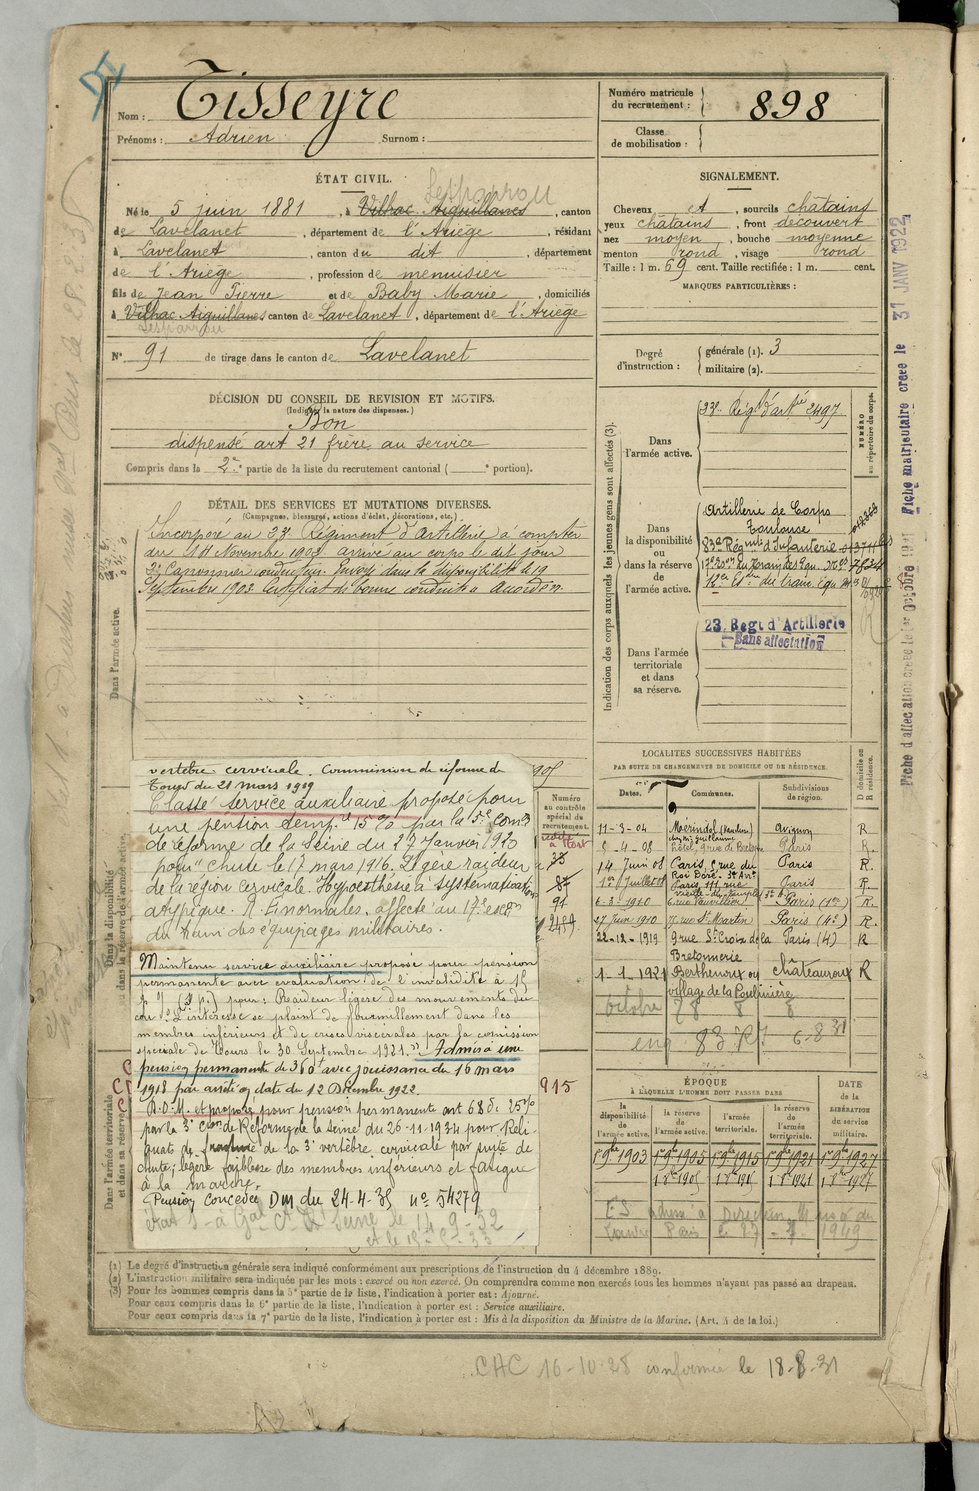 DI
Nom : Tisseyre
Prénoms : Adrien Surnom :
Numéro matricule
du recrutement : 898
Classe
de mobilisation :
ÉTAT CIVIL.
Lesparrou
Né le 5 juin 1881, à Vilhac Aiguillanes, canton
de Lavelanet, département de l'Ariège, résidant
à Lavelanet, canton du dit, département
de l'Ariège, profession de menuisier
fils de Jean Pierre et de Baby Marie, domiciliés
à Vilhac Aiguillanes canton de Lavelanet, département de l'Ariège
Lesparrou
N° 91 de tirage dans le canton de Lavelanet
SIGNALEMENT.
Cheveux et, sourcils chatains
yeux chatains, front découvert
nez moyen, bouche moyenne
menton rond, visage rond
Taille : 1 m. 69 cent. Taille rectifiée : 1 m. cent.
MARQUES PARTICULIÈRES :
Degré
d'instruction :
générale (1). 3
militaire (2).
DÉCISION DU CONSEIL DE REVISION ET MOTIFS.
(Indiquer la nature des dispenses.)
Bon
dispensé art 21 frère au service
Compris dans la 2e partie de la liste du recrutement cantonal ( e portion).
DÉTAIL DES SERVICES ET MUTATIONS DIVERSES.
(Campagnes, blessures, actions d'éclat, décorations, etc.)
Incorporé au 23e Régiment d'Artillerie à compter
du Novembre 1902 arrivé au corps le dit jour
2e Canonnier conducteur. Envoyé dans la disponibilité le 19
Septembre 1903 Certificat de bonne conduite accordé.
Dans l'armée active.
Dans la disponibilité
ou dans la réserve de l'armée active.
Dans l'armée territoriale
et dans sa réserve.
vertèbre cervicale. Commission de réforme de
Tours du 21 mars 1919
Classé service auxiliaire proposé pour
une pension temp. 15% par la 5e Com
de réforme de la Seine du 27 Janvier 1920
pour chute le 17 mars 1916. Légère raideur
de la région cervicale. Hypoesthésie à systématisation
atypique. R. E. normales. affecté au 17e escon
du train des équipages militaires.
Maintenu service auxiliaire proposé pour pension
permanente avec évaluation de l'invalidité à 15
p% pour : Raideur légère des mouvements du
cou. L'intéressé se plaint de fourmillement dans les
membres inférieurs et de crises viscérales par la comission
spéciale de Tours le 30 Septembre 1921. Admis à une
pension permanente de 360f avec jouissance du 16 mars
1918 par arrêté en date du 12 Décembre 1922.
R.D.M. et proposé pour pension permanente art 68 de 25%
par la 3e Cion de Réforme de la Seine du 26-11-1934 pour Reli-
quats de fracture de la 3e vertèbre cervicale par suite de
chute ; légère faiblesse des membres inférieurs et fatigue
à la marche.
Pension Concédée DM du 24-4-35 n° 54279
Indication des corps auxquels les jeunes gens sont affectés (3).
Dans
l'armée active.
23e Régt d'artrie 2497
NUMÉRO
au répertoire du corps.
Dans
la disponibilité
ou
dans la réserve
de
l'armée active.
Artillerie de Corps
Toulouse
83e Régmt d'Infanterie
Dans l'armée
territoriale
et dans
sa réserve.
23. Regt d'Artillerie
Sans affectation
LOCALITÉS SUCCESSIVES HABITÉES
PAR SUITE DE CHANGEMENTS DE DOMICILE OU DE RÉSIDENCE.
Dates. Communes. Subdivisions
de région.
D domicile ou
R résidence.
Numéro
au contrôle
spécial du
recrutement.
11-3-04 Mérindol (Vaucluse) Avignon R
chez Mr Guillaume
8-4-08 hôtel, 9 rue de Bretagne Paris R.
14 Juin 08 Paris, 8 rue du Paris R.
Roi Doré. 3e Arrt
1er Juillet 08 Paris, 111 rue Paris R.
vieille du temple 3e A
6-3-1910 6 rue Vauvilliers Paris (1er) R.
27 Juin 1910 rue St Martin Paris (4e) R.
22-12-1919 9 rue Ste Croix de la Paris (4) R
Bretonnerie
1-1-1921 Berthenoux ou Châteauroux R
village de la
ÉPOQUE
À LAQUELLE L'HOMME DOIT PASSER DANS
DATE
de la
LIBÉRATION
du service
militaire.
la
disponibilité
de
l'armée active.
la réserve
de
l'armée active.
l'armée
territoriale.
la réserve
de
l'armée
territoriale.
1er 9bre 1903 1er 9bre 1905 1er 9bre 1915 1er 9bre 1921 1er 9bre 1927
Fiche matriculaire créée le 31 JANV 1922
Fiche d'affectation créée le 1er Octobre 1921
(1) Le degré d'instruction générale sera indiqué conformément aux prescriptions de l'instruction du 4 décembre 1889.
(2) L'instruction militaire sera indiquée par les mots : exercé ou non exercé. On comprendra comme non exercés tous les hommes n'ayant pas passé au drapeau.
(3) Pour les hommes compris dans la 5e partie de la liste, l'indication à porter est : Ajourné.
Pour ceux compris dans la 6e partie de la liste, l'indication à porter est : Service auxiliaire.
Pour ceux compris dans la 7e partie de la liste, l'indication à porter est : Mis à la disposition du Ministre de la Marine. (Art. 4 de la loi.)
CAC 16-10-28 confirmée le 18-8-31